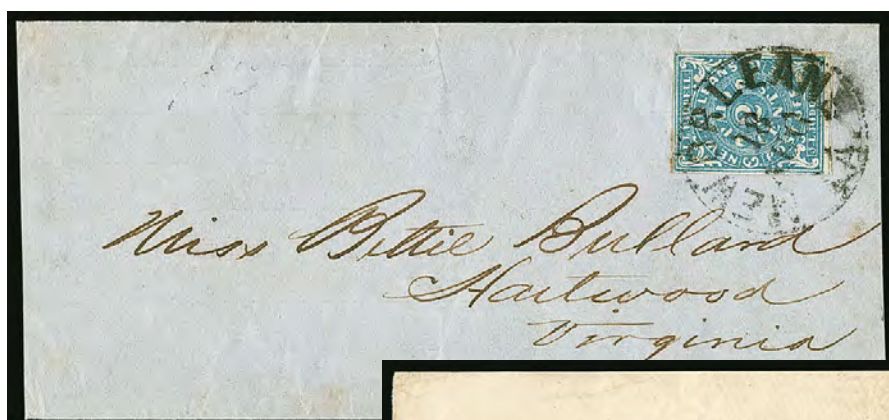 NEW ORLEANS
LA.
2
Miss Bettie Bullard
Hartwood
Virginia